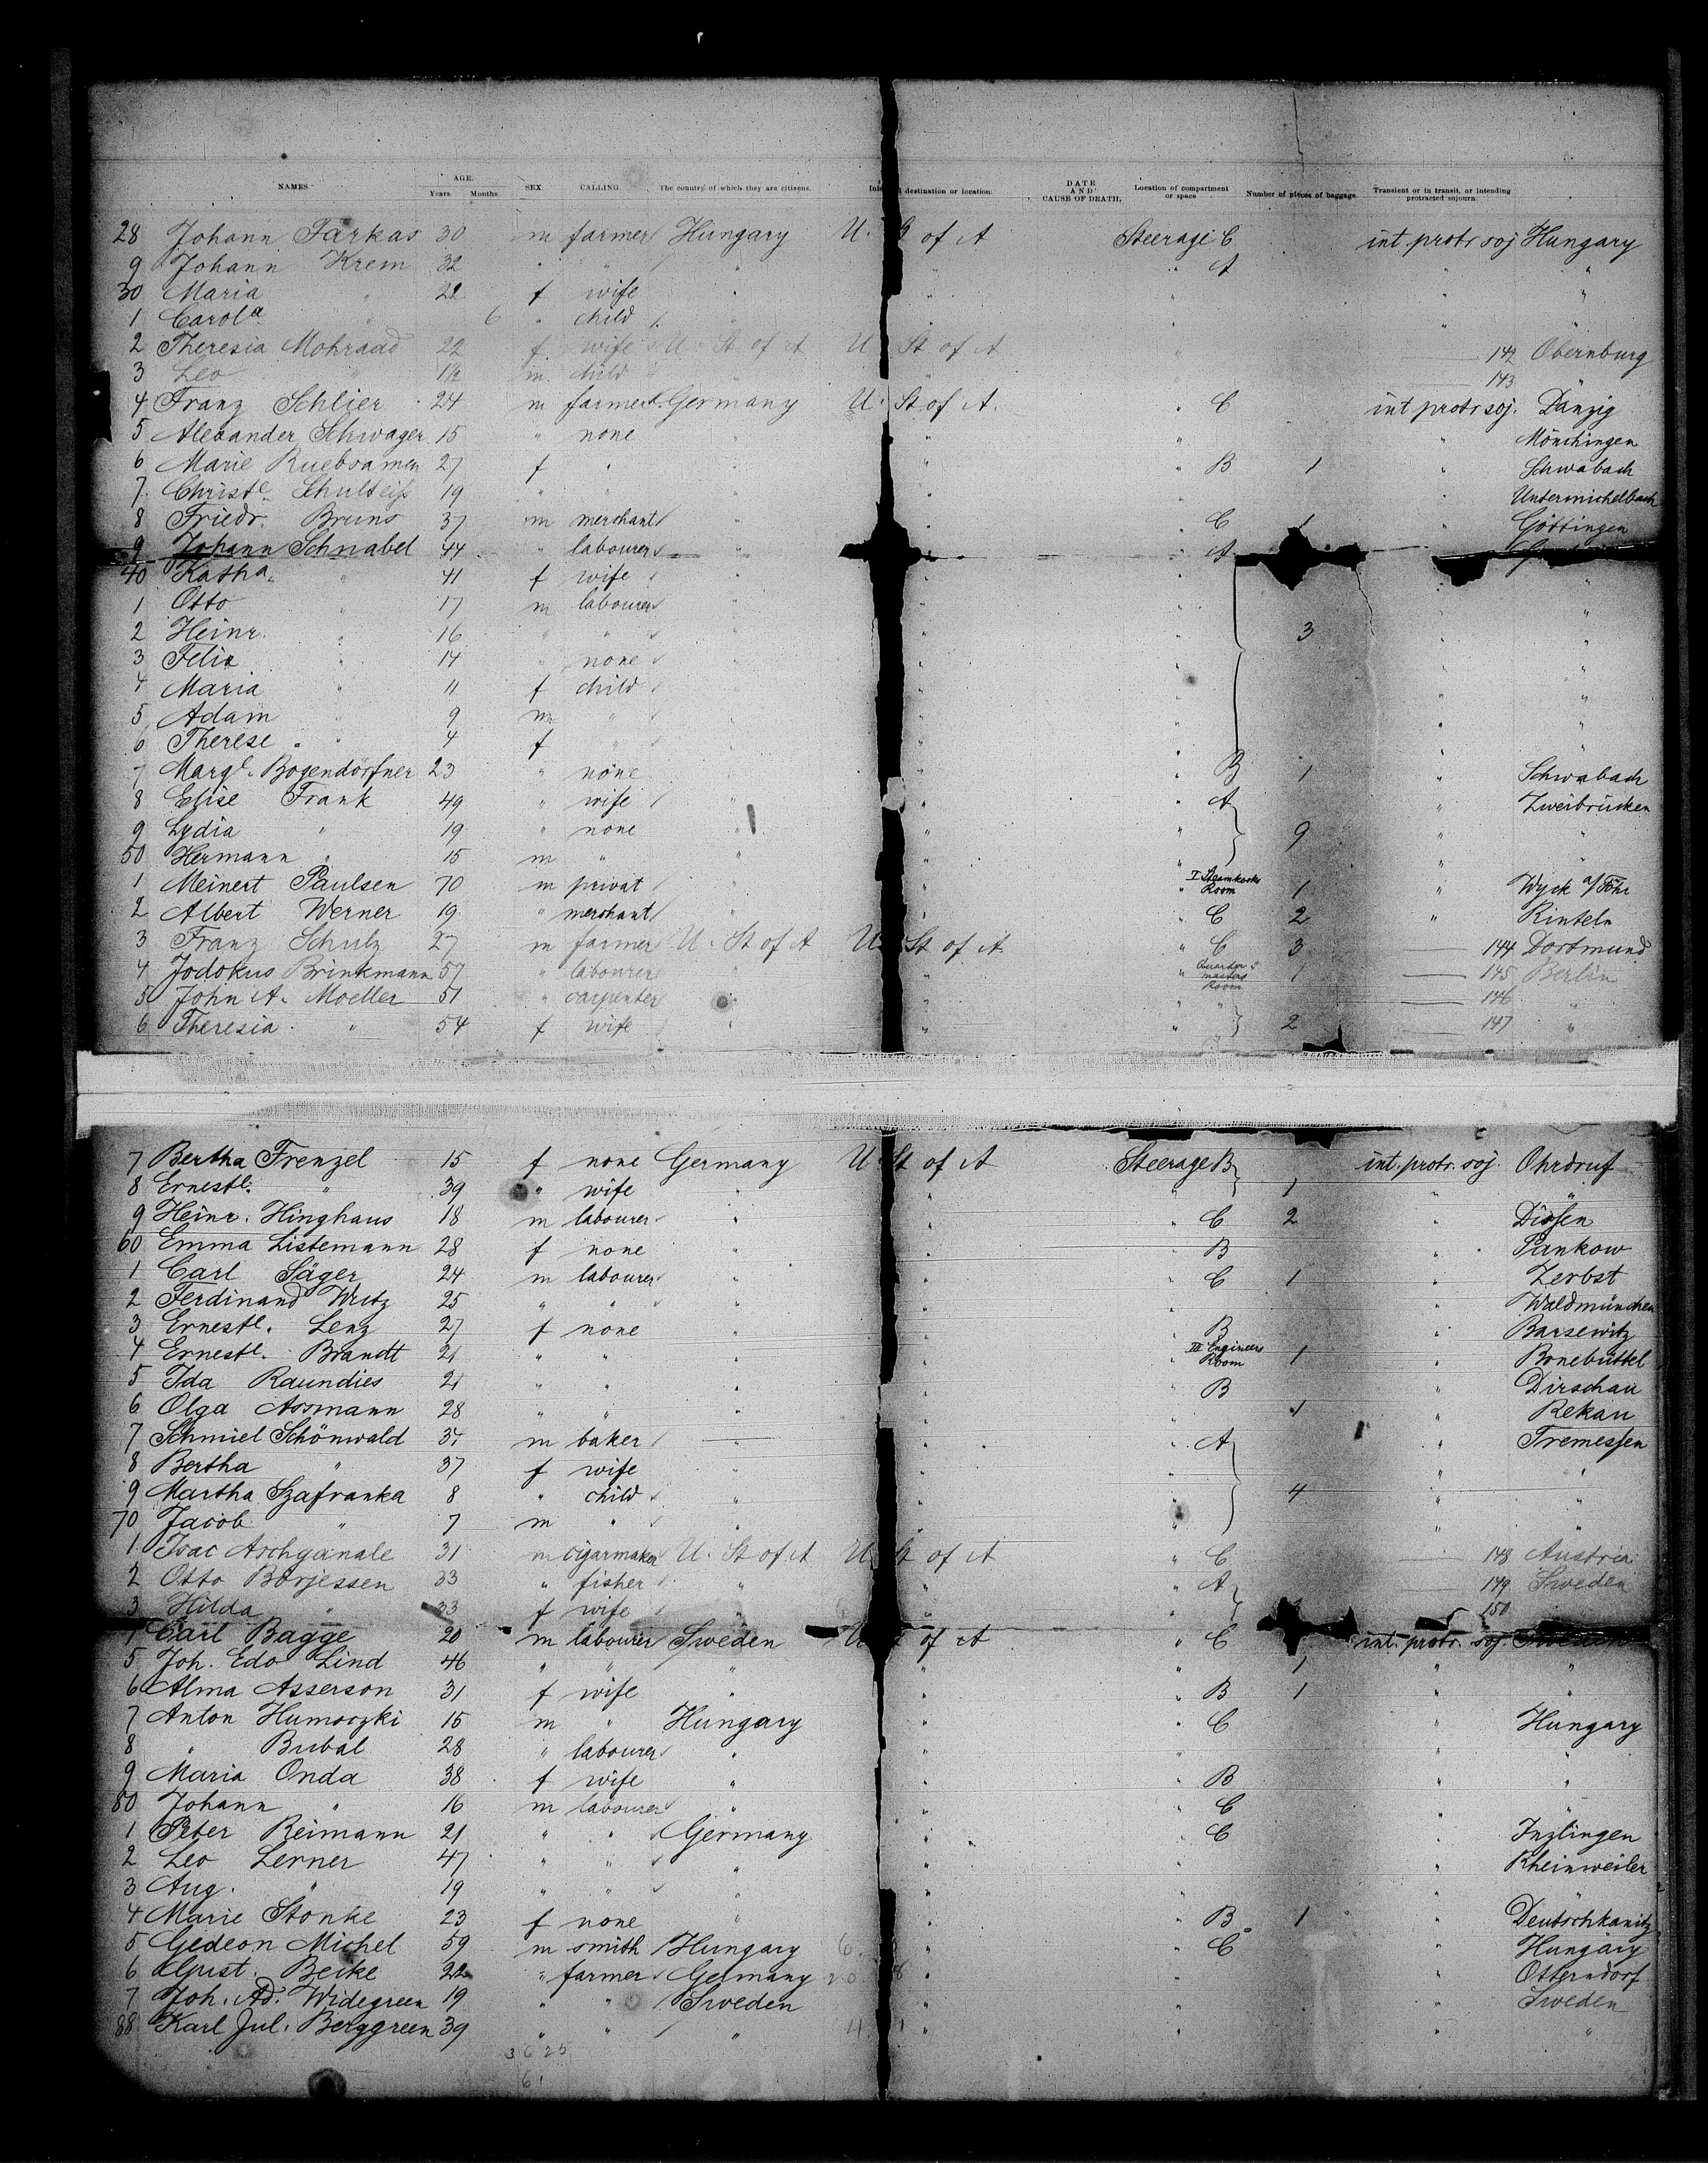 NAMES AGE. Years. Months. SEX. CALLING. The country of which they are citizens. destination or location. DATE AND CAUSE OF DEATH. Location of compartment or space Number of pieces of baggage. Transient or in transit, or intending protracted sojourn.
28 Johann Farkas 30 m farmer Hungary U. of A Steerage C int. protr soj Hungary
9 Johann Krem 32 " " " " " A " "
30 Maria " 22 f wife " " " " "
1 Carola " 6 " child " " " " "
2 Theresia Mohraad 22 f wife U. St of A U St. of A " 142 Obernburg
3 Leo " 1½ m. child " " " 143 "
4 Franz Schlier 24 m farmer Germany U. St. of A. " C int protr soj. Danzig
5 Alexander Schwager 15 " none " " " " Mönchingen
6 Marie Ruebsamen 27 f " " " " B 1 " Schwabach
7. Christe. Schulteiß 19 " " " " " " Untermichelbach
8 Friedr. Bruns 37 m merchant " " " C 1 " Göttingen
9 Johann Schnabel 44 " labourer " " " A
40 Katha. " 41 f wife " " " "
1 Otto " 17 m labourer " " " "
2 Heinr. " 16 " " " " " 3 " "
3 Felix " 14 " none " " " " "
4 Maria " 11 f child " " " " "
5 Adam " 9 m " " " " " "
6 Therese " 4 f " " " " " "
7 Margt. Bogendörfner 23 " none " " " B 1 " Schwabach
8 Elise Frank 49 " wife " " " A " Zweibrücken
9 Lydia " 19 " none " " " 9 " "
50 Hermann " 15 m " " " " " "
1 Meinert Paulsen 70 m privat " " " I Steamkooks Room 1 " Wyck a/Föhr
2 Albert Werner 19 " merchant " " " C 2 " Rinteln
3 Franz Schulz 27 m farmer U. St of A U. St of A. " C 3 144 Dortmund
4 Jodokus Brinkmann 57 " labourer " " " Quarter masters Room 1 145 Berlin
5 John A. Moeller 51 " carpenter " " " " 146 "
6 Theresia " 54 f wife " " " 2 147 "
7 Bertha Frenzel 15 f none Germany U St of A Steerage B int. protr. soj. Ohrdruf
8 Ernestl. " 39 " wife " " " 1 " "
9 Heinr. Hinghaus 18 m labourer " " " C 2 " Dissen
60 Emma Listemann 28 f none " " " B " Pankow
1 Carl Säger 24 m labourer " " " C 1 " Zerbst
2 Ferdinand Wutz 25 " " " " " " Waldmünchen
3 Ernestl. Lenz 27 f none " " " B " Barsewitz
4 Ernestl. Brandt 21 " " " " " III Engineers Room 1 " Bonebüttel
5 Ida Raundies 21 " " " " " B " Dirschau
6 Olga Assmann 28 " " " " " 1 " Rekau
7 Schmiel Schönwald 37 m baker " " " A " Tremessen
8 Bertha " 37 f wife " " " " "
9 Martha Szafranka 8 " child " " " 4 " "
70 Jacob " 7 m " " " " " "
1 Isac Aschganale 31 m cigarmaker U. St of A U St of A " C 148 Austria
2 Otto Börjessen 33 " fisher " " " A 149 Sweden
3 Hilda " 33 f wife " " " 150
Carl Bagge 20 m labourer Sweden U of A " C int. protr. soj. Sweden
5 Joh. Edo Lind 46 " " " " " 1 " "
6 Alma Asserson 31 f wife " " " B 1 " "
7 Anton Humoczki 15 m " Hungary " " C " Hungary
8 " Bubal 28 " labourer " " " " "
9 Maria Onda 38 f wife " " " B " "
80 Johann " 16 m labourer " " " C " "
1 Peter Reimann 21 " " Germany " " C " Inzlingen
2 Leo Lerner 47 " " " " " " Rheinweiler
3 Aug. " 19 " " " " " " "
4 Marie Stonke 23 f none " " " B 1 " Deutschkanitz
5 Gedeon Michel 59 m smith Hungary " " C " Hungary
6 Gust. Beike 22 " farmer Germany " " " Otterndorf
7 Joh. Ad. Widegreen 19 " " Sweden " " " Sweden
88 Karl Jul. Berggreen 39 " " " " " " "
3 6 25
6